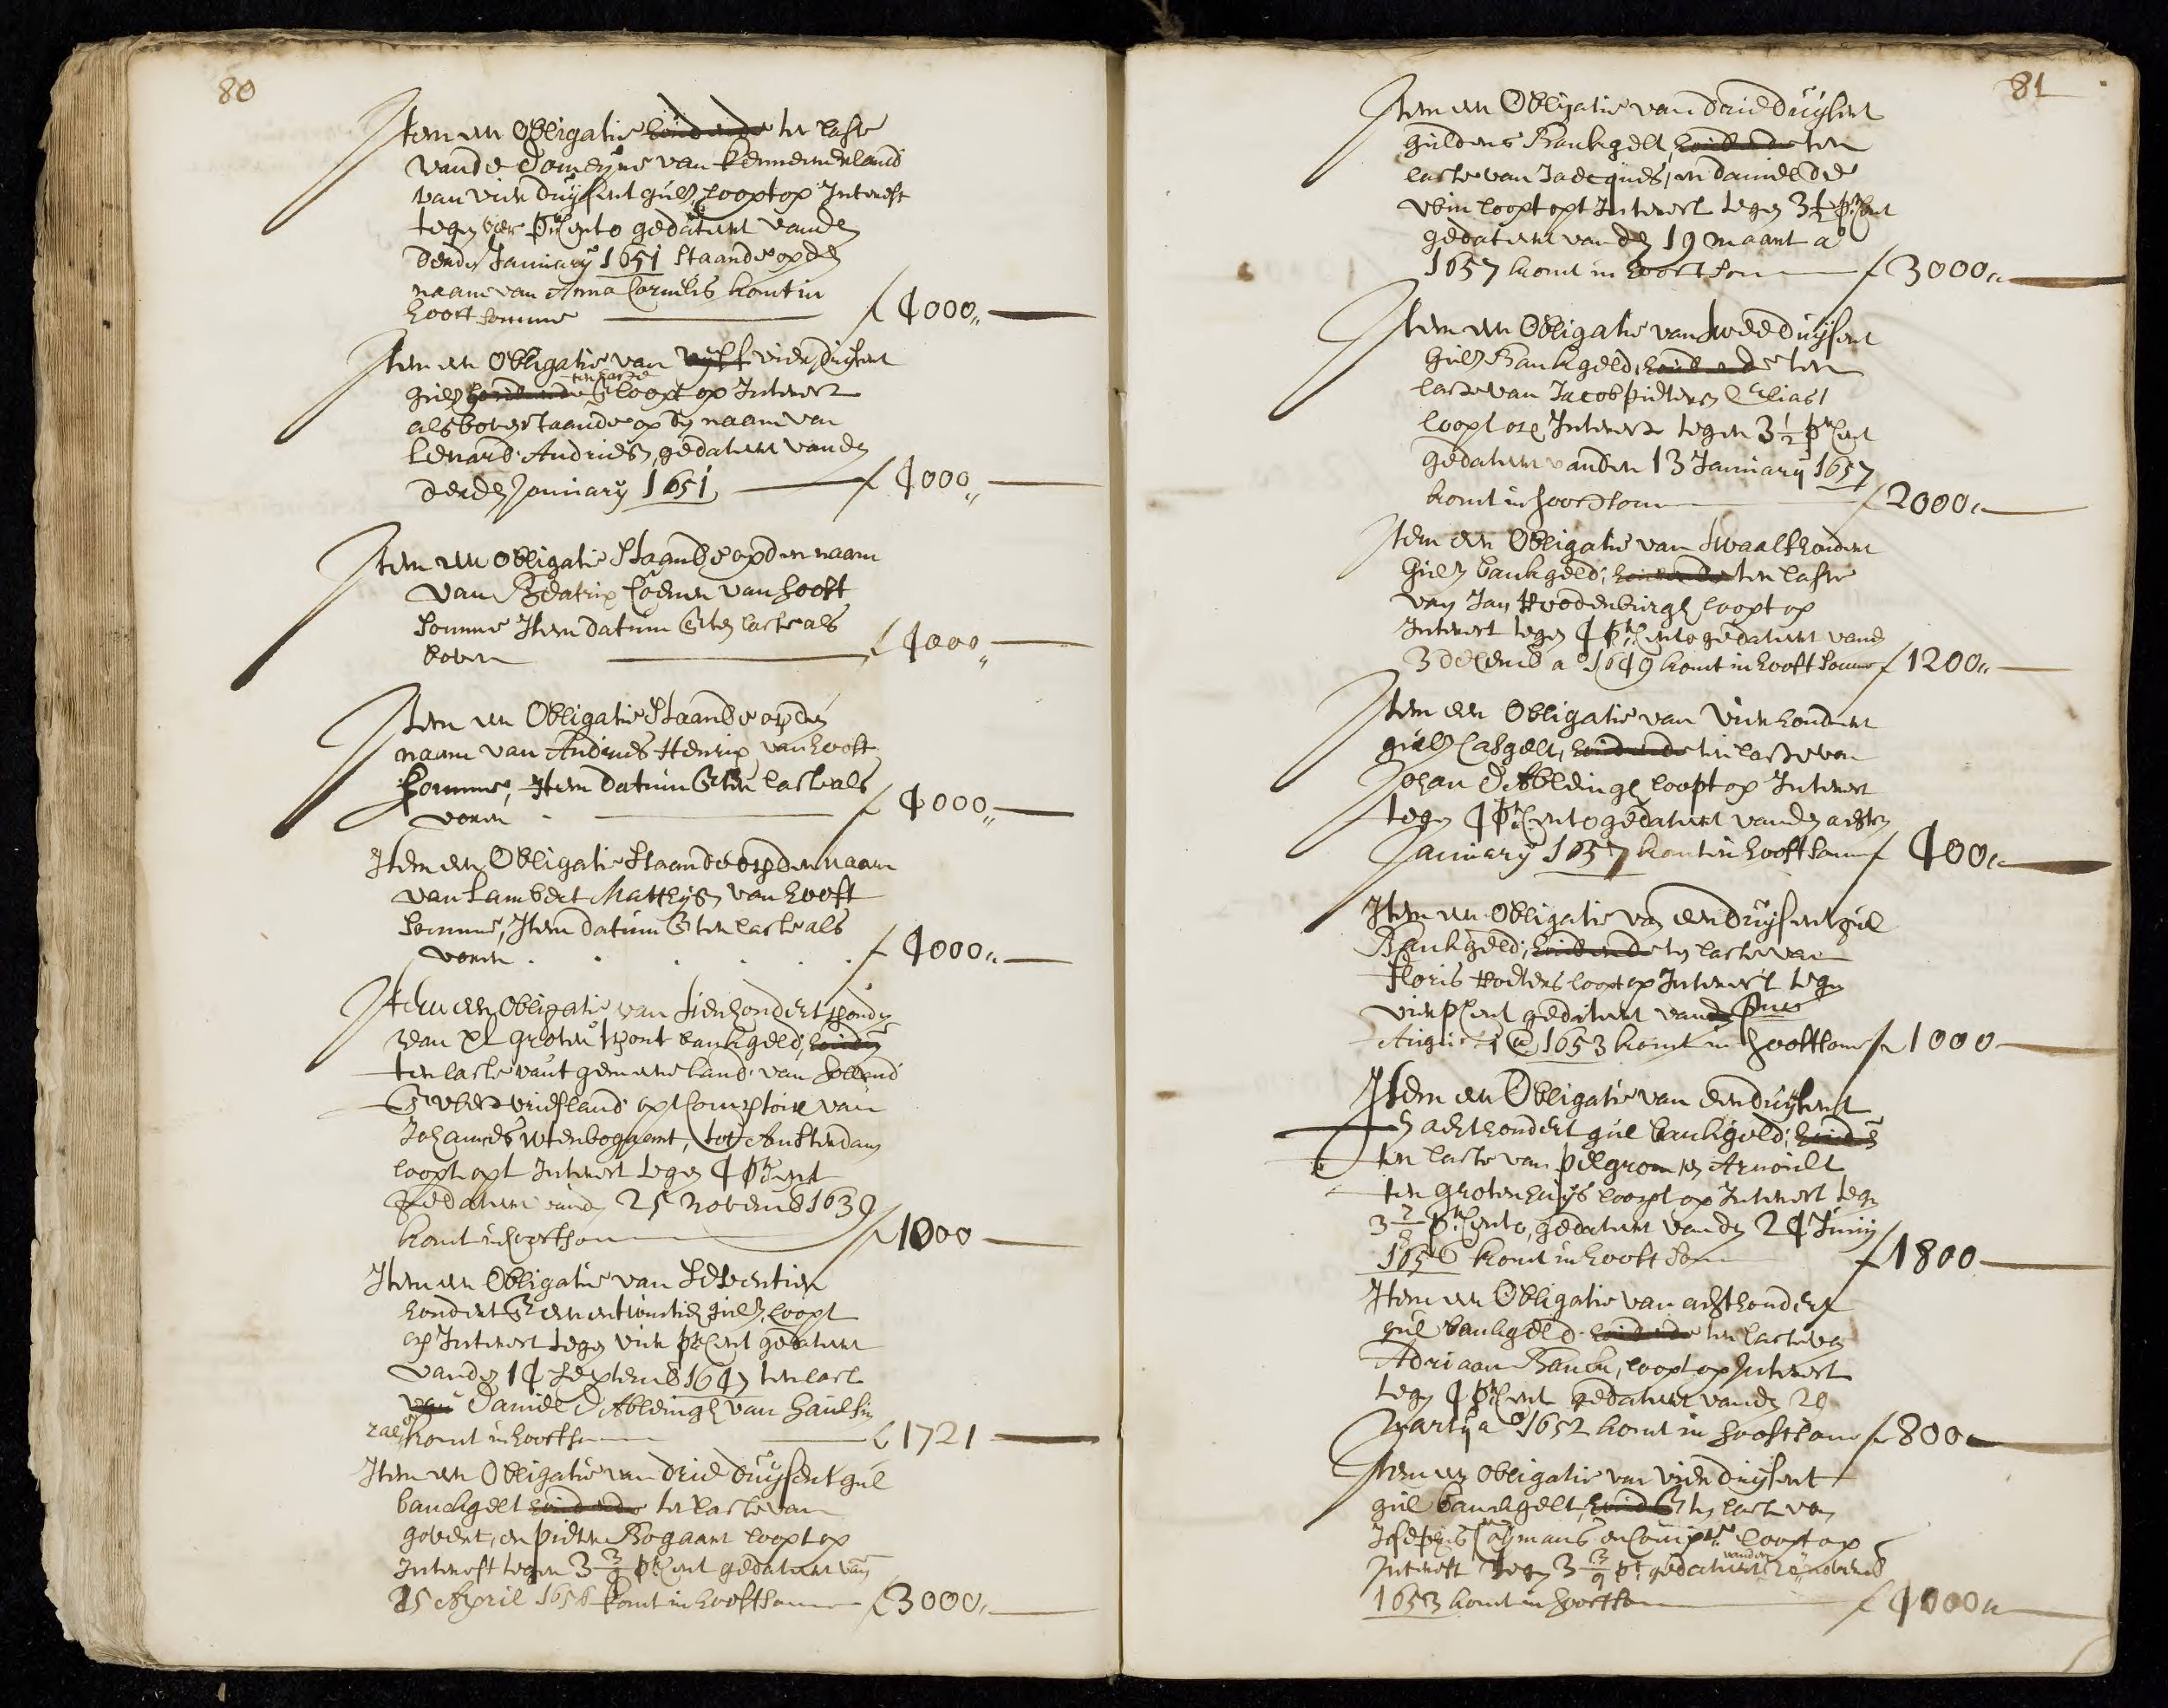 80
Item een Obligatie houdende ter laste
vande domeyne van Kennemerland
van vier duijsent guld loopt op Interest
tegen vier pr Cento gedateert vanden
derden January 1651 staande op den
naam van Anna Cornelis komt in
hooft somme f 4000,,
Item een Obligatie van vijff vier duijsent
ten laste
guld houdende & loopt op Interest
als boven staande op den naam van
Lenard Andriesz, gedateert vanden
derden January 1651 f 4000,,
Item een Obligatie staande op den naam
van Beatrix Coenen van hooft
somme Item datum & ten laste als
boven f 4000,,
Item een Obligatie staande op den
naam van Andries Henrix van hooft
somme, Item datum & ten laste als
voren f 4000,,
Item een Obligatie staande op den naam
van Lambert Matthijsz van hooft
somme, Item datum & ten laste als
voren f 4000,,
Item een Obligatie van hondert ponden
van XL groten tpont bankgeld,
ten laste vant gemeene land van holland
& westvriesland opt Comptoir van
Johannes Wtenbogaert, tot Amsterdam
loopt opt Interest tegen 4 pr Cent
gedateert vanden 25 novemb 1639
komt in hooftsom f 1000
Item een Obligatie van seventien
hondert & eenentwintich guld, loopt
op Interest tegen vier pr Cent gedateert
vanden 14 septemb 1647 ten last
van Daniel d'Ableingh van
zal komt in hooftsom f 1721
Item een Obligatie van drie duijsent gul
banckgelt houdende ter laste van
govert, en pieter Bogaart loopt op
Interest tegen 3 3/4 pr Cent gedateert van
25 April 1656 komt in hooftsomme f 3000,,
81
Item een Obligatie van drie duijsent
guldens Bankgelt, houdende ten
laste van Jacques, en daniel de
loopt opt Interest tegen 3 1/2 pr Cent
gedateert vanden 19 maart ao
1657 komt in hooft som f 3000,,
Item een Obligatie van twee duijsent
guld Bankgeld, houdende ten
laste van Jacob pietersz Elias
loopt ope Interest tegen 3 1/2 pr Cent
gedateert vanden 13 January 1657
komt in hooftsom f 2000,,
Item een Obligatie van twaalf hondert
guld bankgeld, houdende ten laste
van Jan Hoodenburgh loopt op
Interest tegen 4 pr Cento gedateert vand
3 decemb ao 1649 komt in hooft somme f 1200,,
Item een Obligatie van vier hondert
guld Casgelt, houdende ten laste van
Johan d'Ableingh loopt op Interest
tegen 4 pr Cento gedateert vanden achten
January 1657 komt in hooft som f 400,,
Item een Obligatie van een duijsent gul
Bankgeld, houdende ten laste van
Floris loopt op Interest tegen
vier p Cent gedateert vanden pmo
Augusti @ 1653 komt in hooftsom f 1000
Item een Obligatie van een duijsent
En achthondert gul bankgeld,
ten laste van pelgrom en Arnoilt
ten grotenhuijs loopt op Interest tegen
pr Cento, gedateert vanden 24 Junij
1656 komt in hooft som f 1800
Item een Obligatie van achthondert
gul bankgeld houdende ten laste van
Adriaan Banck, loopt op Interest
tegen 4 pr Cent gedateert vanden 20
Marty ao 1652 komt in hooftsom f 800
Item een Obligatie van vier duijsent
gul banckgelt, ten laste van
Josephus Coymans en Comp loopt op
vanden
Interest tegen 3 pr gedateert novemb
1653 komt in hooftsom f 4000,,